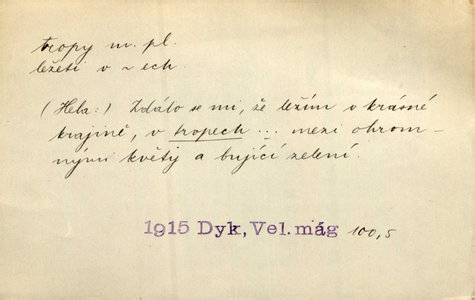 tropy m. pl.
ležeti v ~ ech.
(Hela:) Zdálo se mi, že ležím v krásné
krajině, v tropech ... mezi ohrom-
nými květy a bující zelení.
1915 Dyk, Vel. mág 100,5